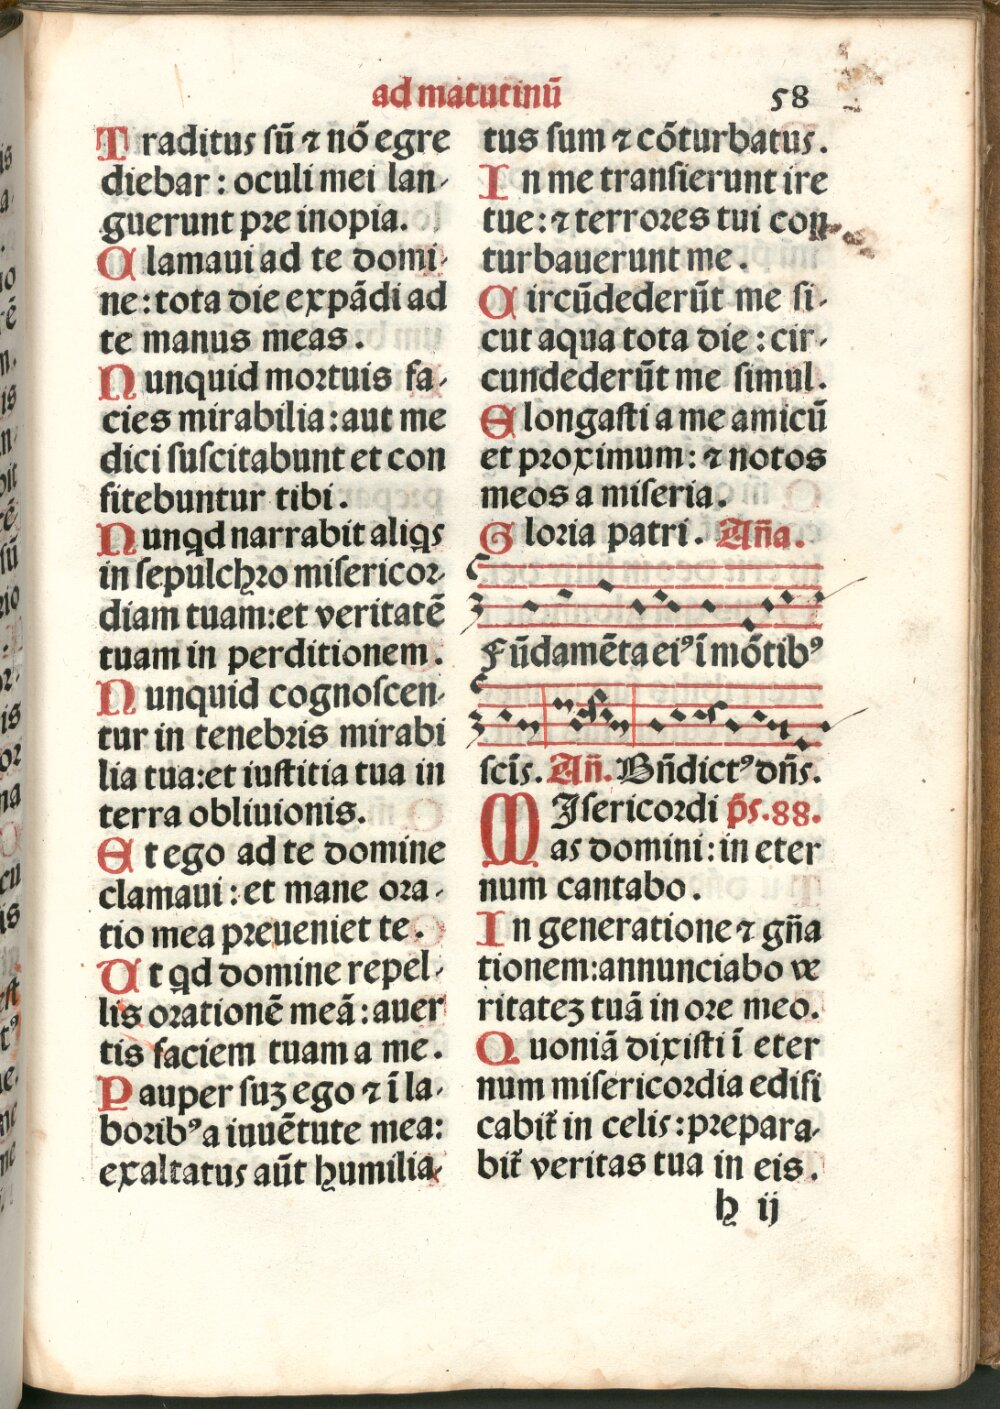 ad matutinū
58
Traditus sū ⁊ nō egre
diebar : oculi mei lan-
guerunt pre inopia.
Clamaui ad te domi-
ne : tota die expādi ad
te manus meas .
Nunquid mortuis fa-
cies mirabilia : aut me
dici suscitabunt et con
fitebuntur tibi .
Nunqd narrabit aliqs
in sepulchro misericor-
diam tuam : et veritatē
tuam in perditionem .
Nunquid cognoscen-
tur in tenebris mirabi
lia tua : et iustitia tua in
terra obliuionis.
Et ego ad te domine
clamaui : et mane ora-
tio mea preueniet te .
Ut qd domine repel-
lis orationē meā : auer
tis faciem tuam a me .
Pauper suꝫ ego ⁊ ī la-
boribꝰ a iuuētute mea :
exaltatus aūt humilia-
tus sum ⁊ cōturbatus .
In me transierunt ire
tue : ⁊ terrores tui con-
turbauerunt me .
Circūdederūt me si-
cut aqua tota die : cir-
cundederūt me simul .
Elongasti a me amicū
et proximum : ⁊ notos
meos a miseria .
Gloria patri . Aña.
Fūdamēta eiꝰ ī mōtibꝰ
scīs. Añ. Bñdictꝰ dñs.
MIsericordi p̄s. 88.
as domini : in eter
num cantabo .
In generatione ⁊ gña
tionem : annunciabo ve
ritateꝫ tuā in ore meo.
Quoniā dixisti ī eter
num misericordia edifi
cabit̄ in celis : prepara-
bit̄ veritas tua in eis .
h ij